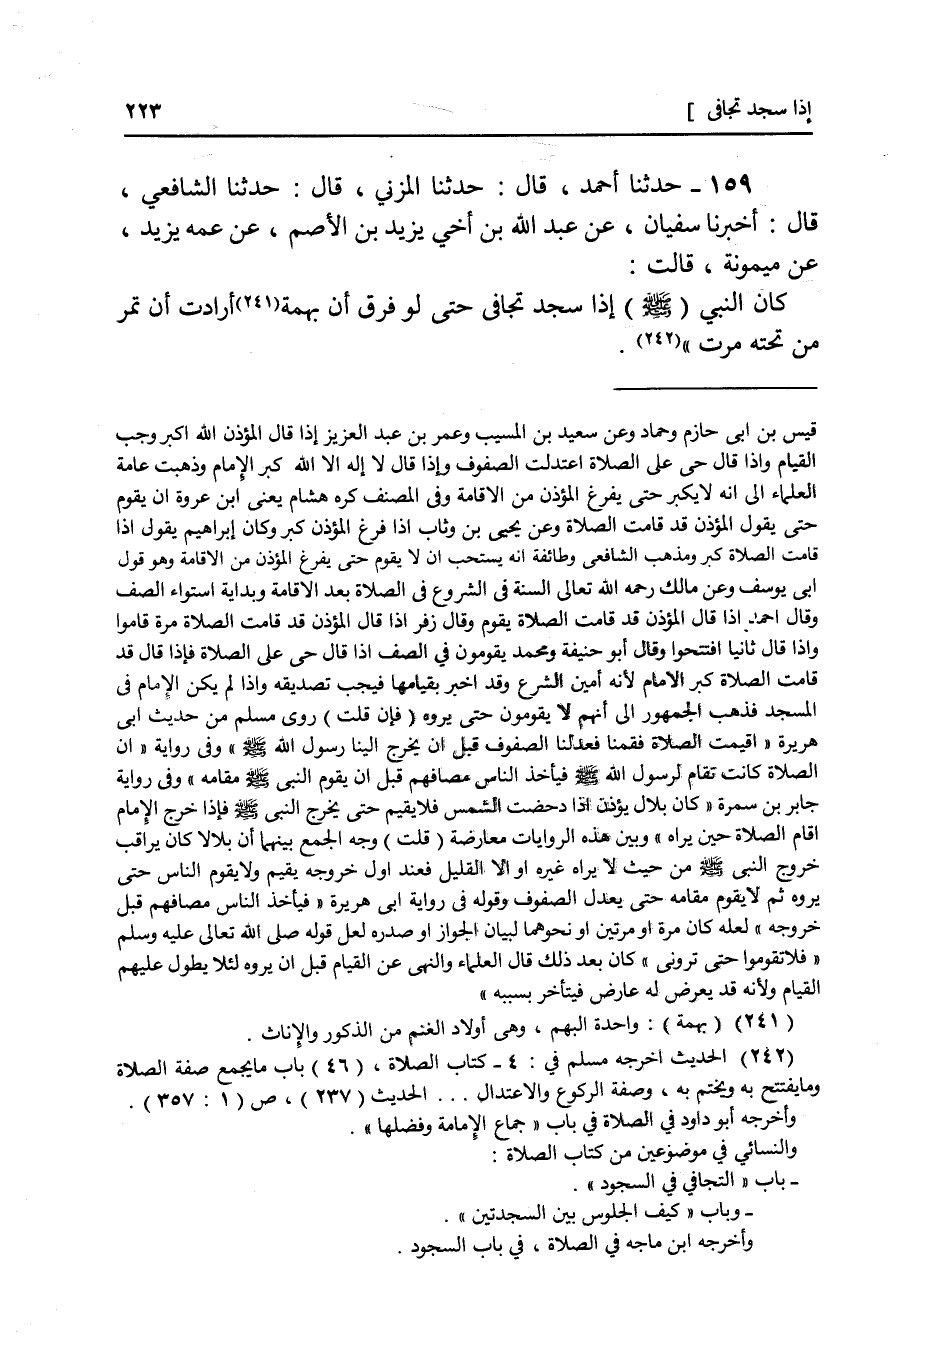 إذا سجد تجافى ] ٢٢٣
١٥٩ ـ حدثنا أحمد ، قال : حدثنا المزني ، قال : حدثنا الشافعي ،
قال : أخبرنا سفيان ، عن عبد الله بن أخي يزيد بن الأصم ، عن عمه يزيد ،
عن ميمونة ، قالت :
كان النبي ( ﷺ ) إذا سجد تجافى حتى لو فرق أن بهمة(٢٤١)أرادت أن تمر
من تحته مرت »(٢٤٢) .
قيس بن ابى حازم وحماد وعن سعيد بن المسيب وعمر بن عبد العزيز إذا قال المؤذن الله اكبر وجب
القيام واذا قال حى على الصلاة اعتدلت الصفوف وإذا قال لا إله الا الله كبر الإمام وذهبت عامة
العلماء الى انه لايكبر حتى يفرغ المؤذن من الاقامة وفى المصنف كره هشام يعنى ابن عروة ان يقوم
حتى يقول المؤذن قد قامت الصلاة وعن يحيى بن وثاب اذا فرغ المؤذن كبر وكان إبراهيم يقول اذا
قامت الصلاة كبر ومذهب الشافعى وطائفة انه يستحب ان لا يقوم حتى يفرغ المؤذن من الاقامة وهو قول
ابى يوسف وعن مالك رحمه الله تعالى السنة فى الشروع فى الصلاة بعد الاقامة وبداية استواء الصف
وقال احمد اذا قال المؤذن قد قامت الصلاة يقوم وقال زفر اذا قال المؤذن قد قامت الصلاة مرة قاموا
واذا قال ثانيا افتتحوا وقال أبو حنيفة ومحمد يقومون في الصف اذا قال حى على الصلاة فإذا قال قد
قامت الصلاة كبر الامام لأنه أمين الشرع وقد اخبر بقيامها فيجب تصديقه واذا لم يكن الإمام فى
المسجد فذهب الجمهور الى أنهم لا يقومون حتى يروه ( فإن قلت ) روى مسلم من حديث ابى
هريرة « اقيمت الصلاة فقمنا فعدلنا الصفوف قبل ان يخرج الينا رسول الله ﷺ » وفى رواية « ان
الصلاة كانت تقام لرسول الله ﷺ فيأخذ الناس مصافهم قبل ان يقوم النبى ﷺ مقامه » وفى رواية
جابر بن سمرة « كان بلال يؤذن اذا دحضت الشمس فلايقيم حتى يخرج النبى ﷺ فإذا خرج الإمام
اقام الصلاة حين يراه » وبين هذه الروايات معارضة ( قلت ) وجه الجمع بينهما أن بلالا كان يراقب
خروج النبى ﷺ من حيث لا يراه غيره او الا القليل فعند اول خروجه يقيم ولايقوم الناس حتى
يروه ثم لايقوم مقامه حتى يعدل الصفوف وقوله فى رواية ابى هريرة « فيأخذ الناس مصافهم قبل
خروجه » لعله كان مرة او مرتين او نحوهما لبيان الجواز او صدره لعل قوله صلى الله تعالى عليه وسلم
« فلاتقوموا حتى ترونى » كان بعد ذلك قال العلماء والنهى عن القيام قبل ان يروه لئلا يطول عليهم
القيام ولأنه قد يعرض له عارض فيتأخر بسببه »
( ٢٤١) ( بهمة ) : واحدة البهم ، وهى أولاد الغنم من الذكور والإناث .
(٢٤٢) الحديث اخرجه مسلم في : ٤ ـ كتاب الصلاة ، ( ٤٦ ) باب مايجمع صفة الصلاة
ومايفتتح به ويختم به ، وصفة الركوع والاعتدال ... الحديث ( ٢٣٧ ) ، ص ( ١ : ٣٥٧ ) .
وأخرجه أبو داود في الصلاة في باب « جماع الإمامة وفضلها » .
والنسائي في موضوعين من كتاب الصلاة :
ـ باب « التجافي في السجود » .
ـ وباب « كيف الجلوس بين السجدتين » .
وأخرجه ابن ماجه في الصلاة ، في باب السجود .